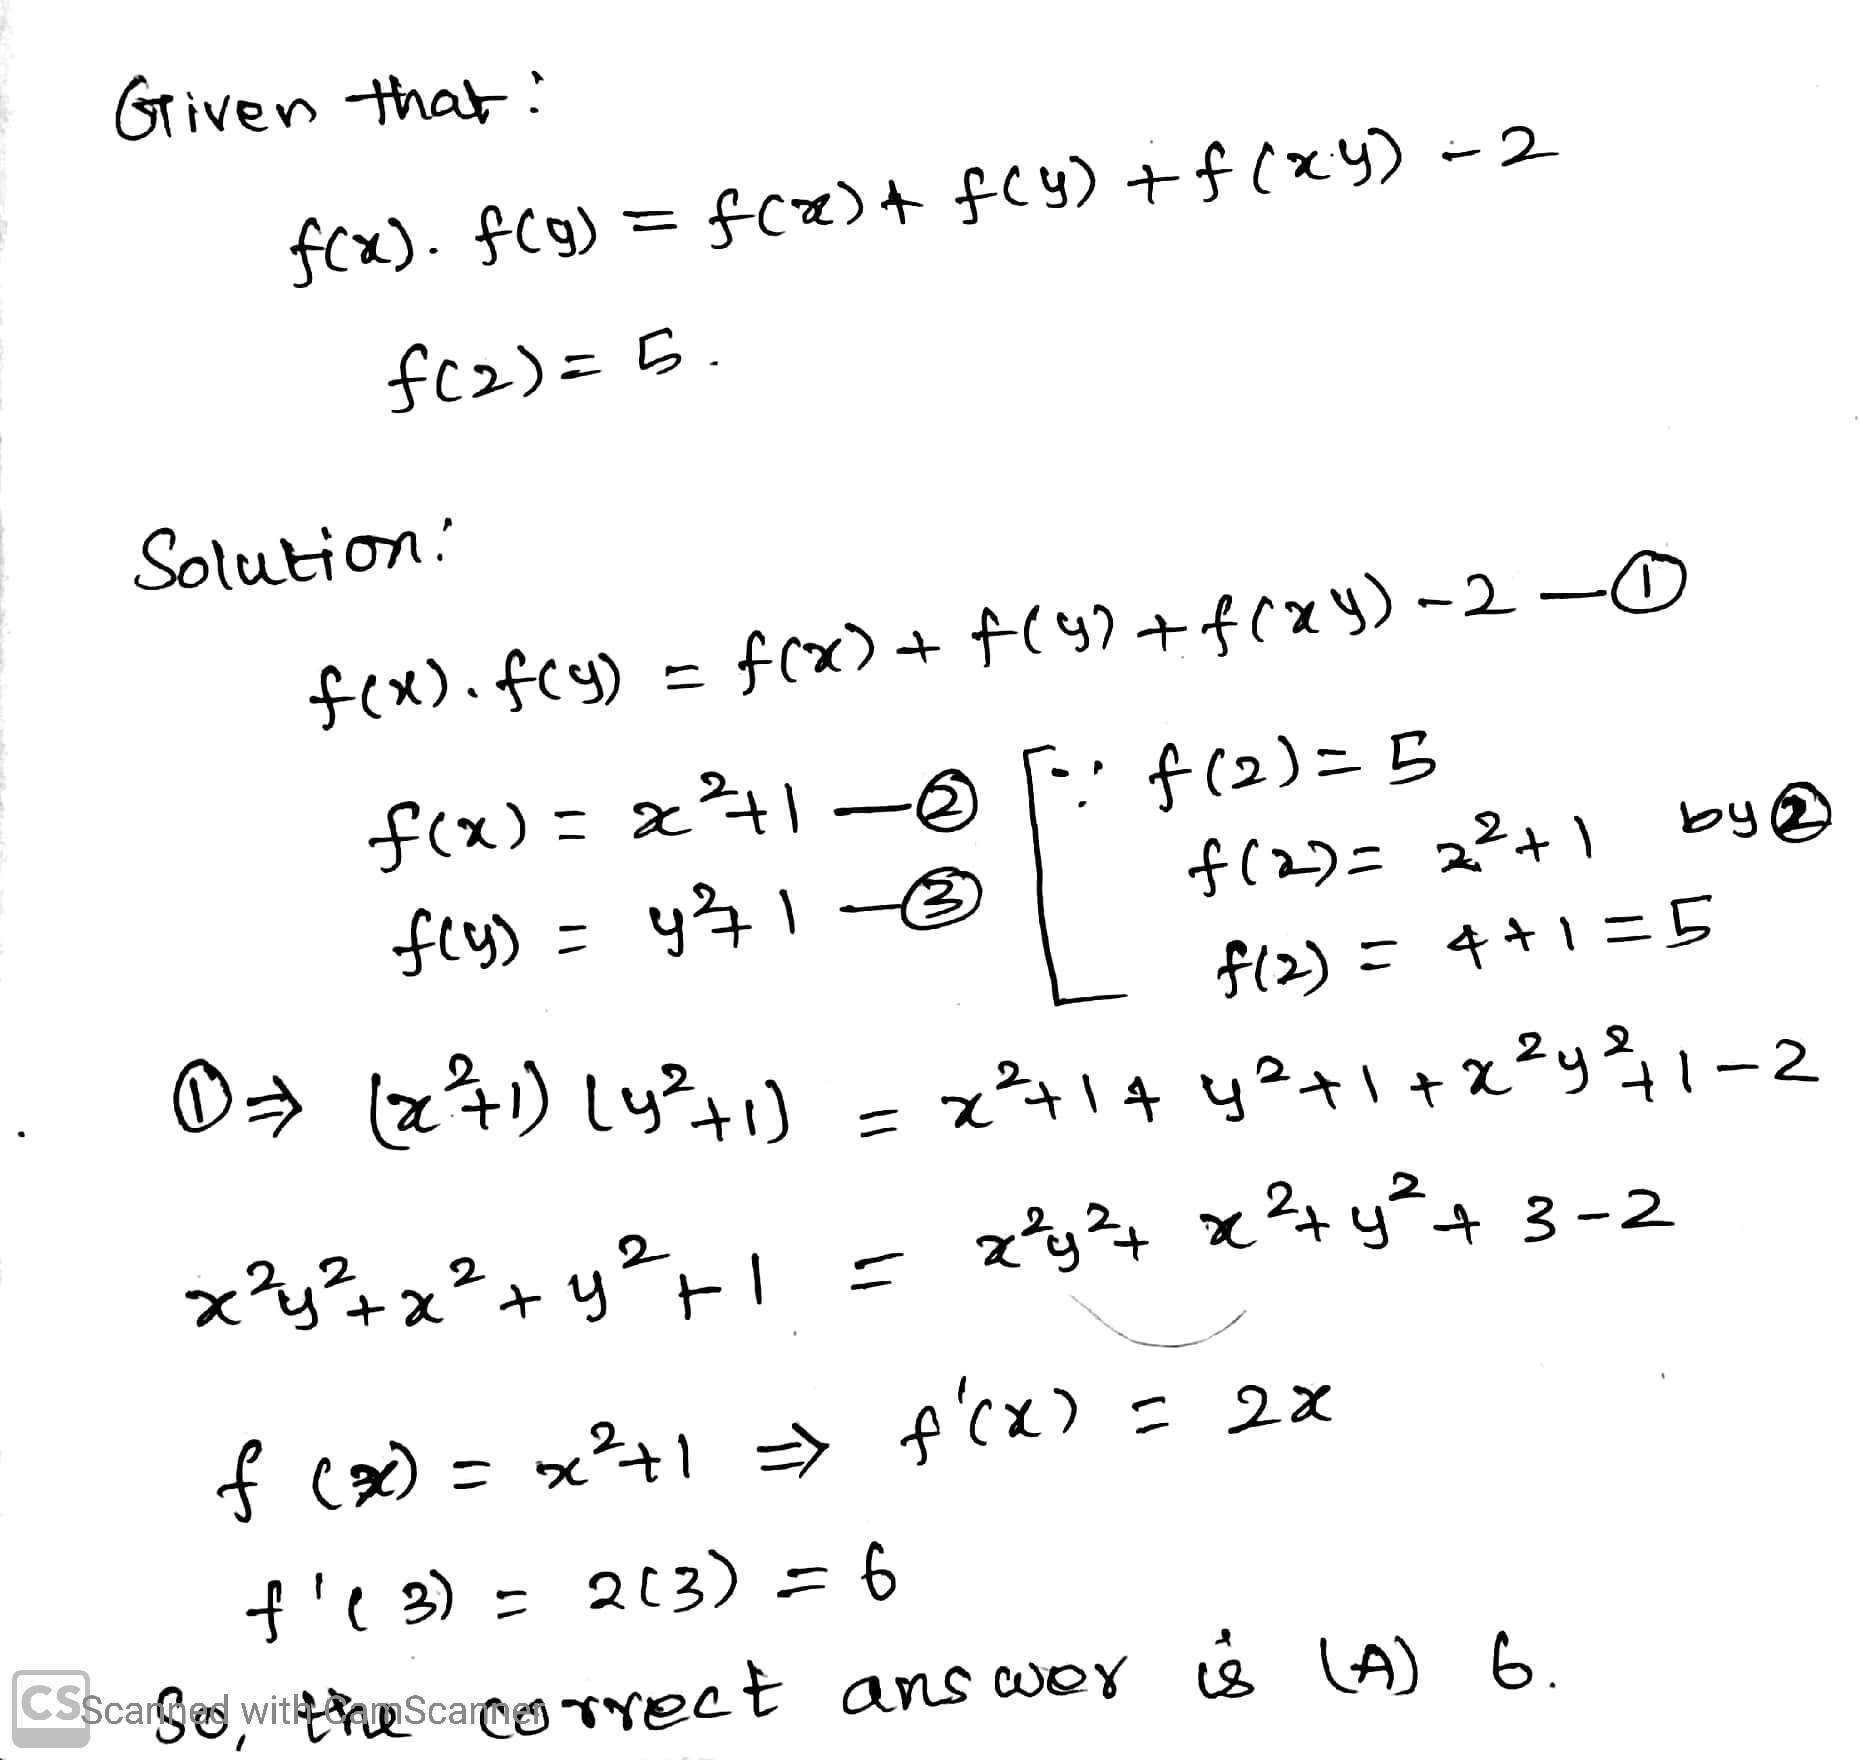 Given that:
f(x). f(y) = f(x) + f(y) + f(x.y) - 2
f(2) = 5.
Solution:
f(x). f(y) = f(x) + f(y) + f(xy) - 2 — ①
f(x) = x²+1 — ② [∵ f(2) = 5
f(2) = 2²+1 by ②
f(y) = y²+1 — ③
f(2) = 4+1 = 5
① ⇒ (x²+1) (y²+1) = x²+1 + y²+1 + x²y²+1-2
x²y²+x²+y²+1 = x²y²+ x²+y²+ 3-2
f (x) = x²+1 ⇒ f'(x) = 2x
f'(3) = 2(3) = 6
So, the correct answer is (A) 6.
CS Scanned with CamScanner